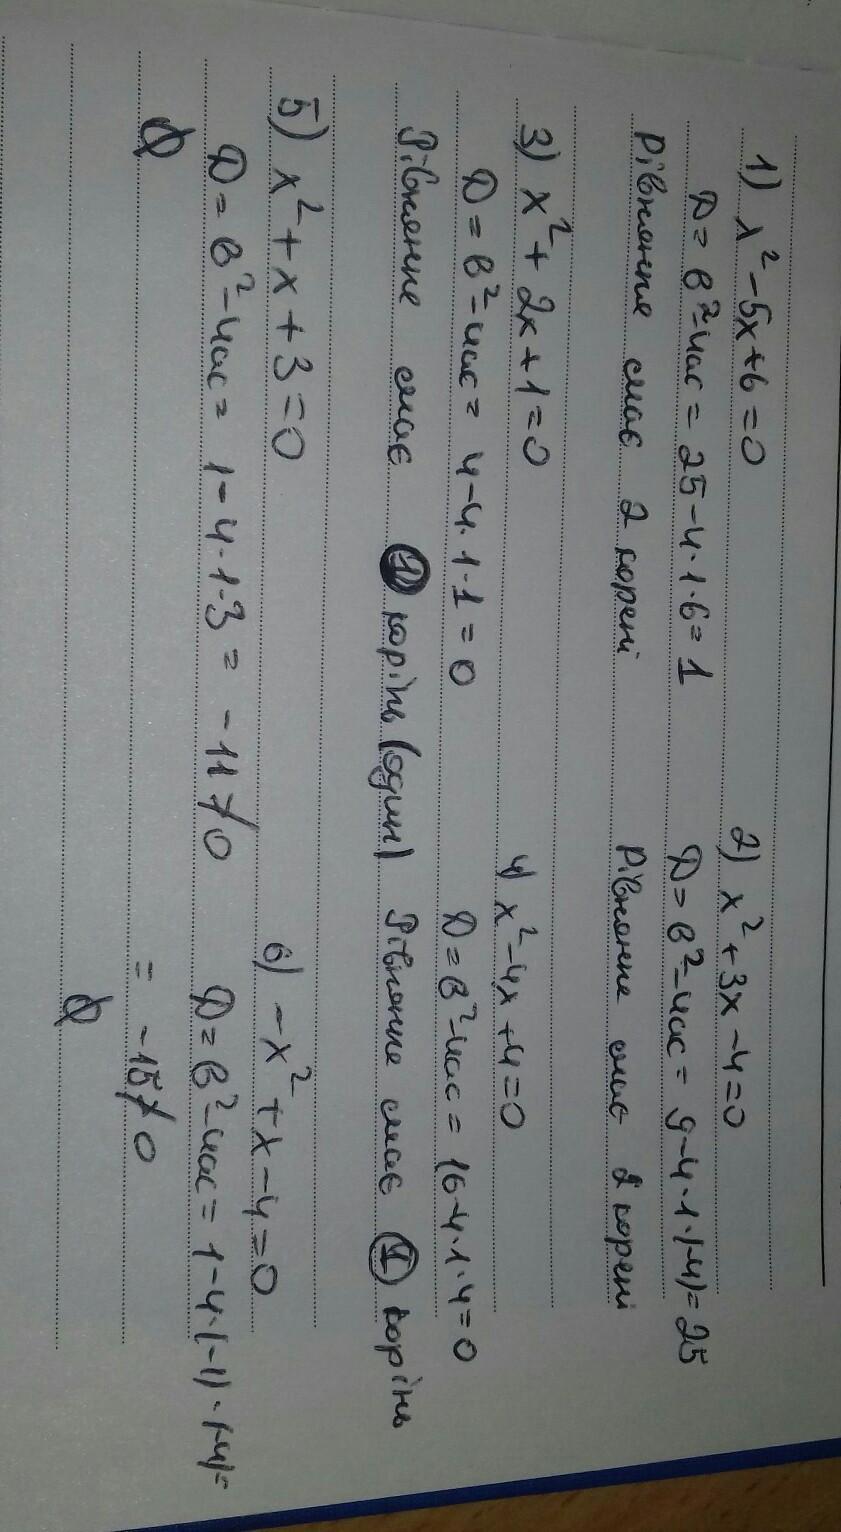 1) x² - 5x + 6 = 0
D = b² - 4ac = 25 - 4·1·6 = 1
рівняння має 2 корені
2) x² + 3x - 4 = 0
D = b² - 4ac = 9 - 4·1·(-4) = 25
рівняння має 2 корені
3) x² + 2x + 1 = 0
D = b² - 4ac = 4 - 4·1·1 = 0
Рівняння має 1 корінь (один)
4) x² - 4x + 4 = 0
D = b² - 4ac = 16 - 4·1·4 = 0
Рівняння має 1 корінь
5) x² + x + 3 = 0
D = b² - 4ac = 1 - 4·1·3 = -11 ≠ 0
∅
6) -x² + x - 4 = 0
D = b² - 4ac = 1 - 4·(-1)·(-4) =
= -15 ≠ 0
∅